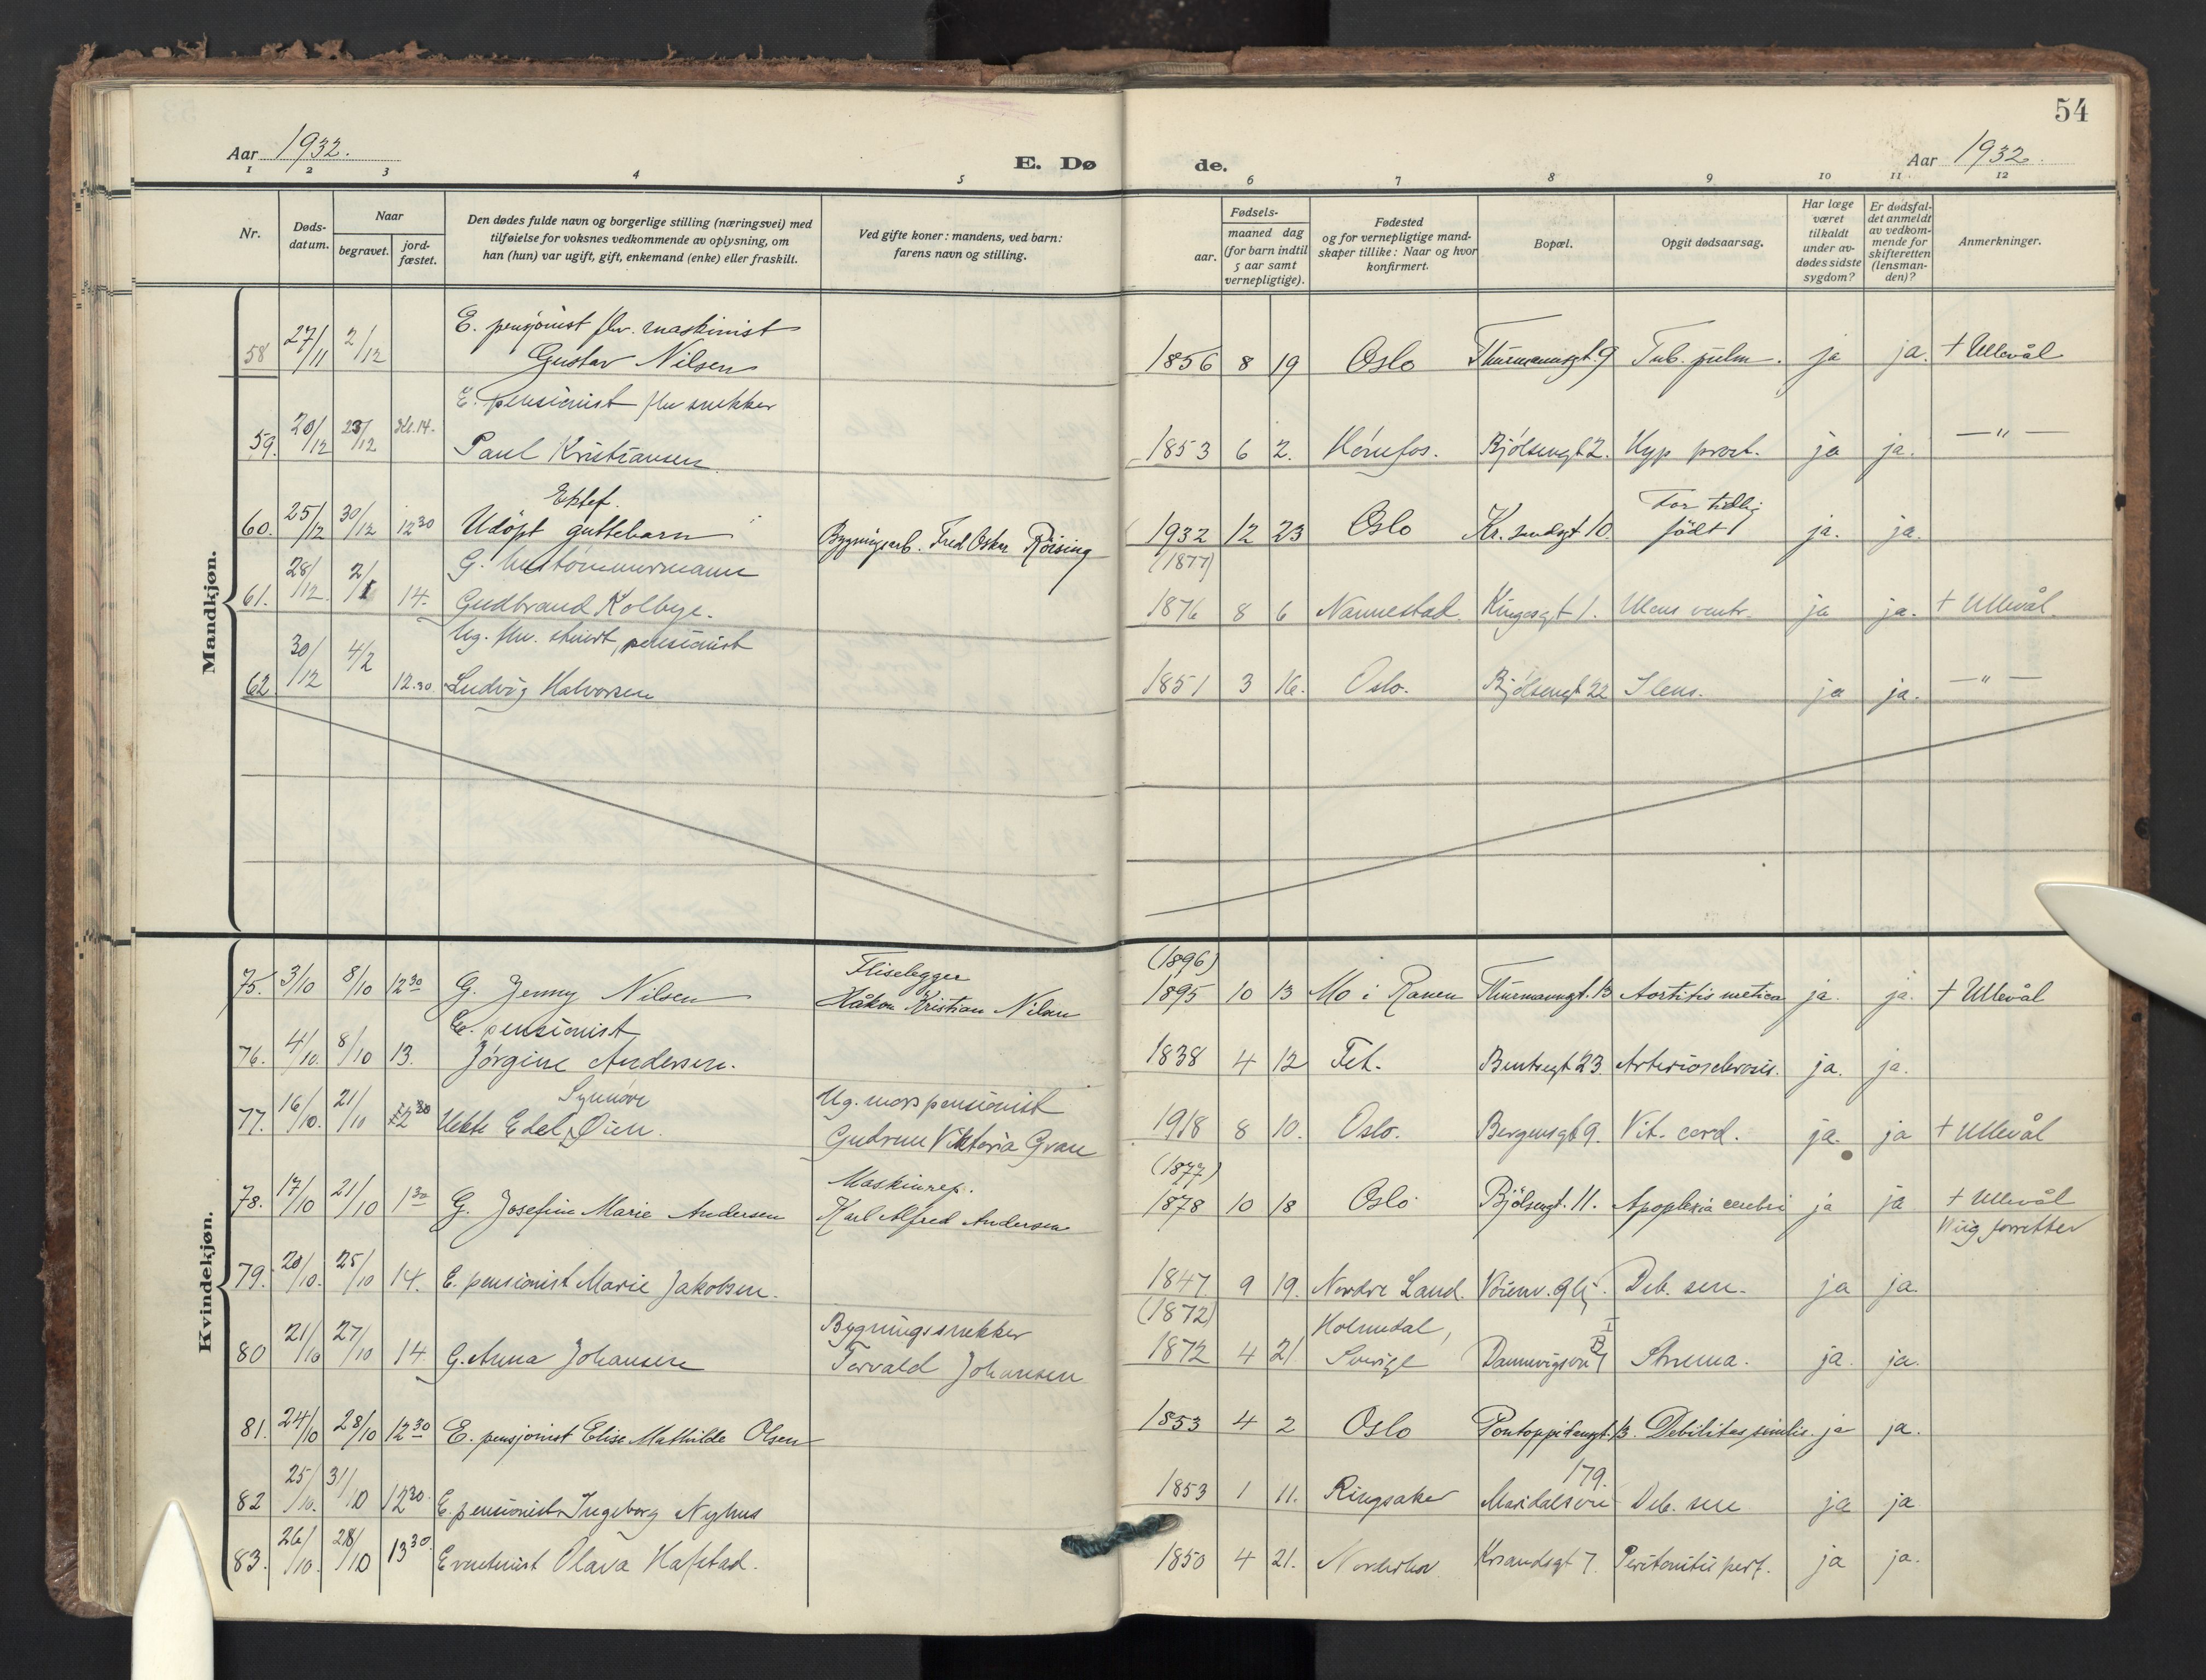 54
Aar 1932.
E. Døde.
Aar 1932.
1 2 3 4 5 6 7 8 9 10 11 12
Nr.
Døds-
datum.
Naar
begravet.
jord-
fæstet.
Den dødes fulde navn og borgerlige stilling (næringsvei) med
tilføielse for voksnes vedkommende av oplysning, om
han (hun) var ugift, gift, enkemand (enke) eller fraskilt.
Ved gifte koner: mandens, ved barn:
farens navn og stilling.
Fødsels-
aar.
maaned dag
(for barn indtil
5 aar samt
vernepligtige).
Fødested
og for vernepligtige mand-
skaper tillike: Naar og hvor
konfirmert.
Bopæl.
Opgit dødsaarsag.
Har læge
været
tilkaldt
under av-
dødes sidste
sygdom?
Er dødsfal-
det anmeldt
av vedkom-
mende for
skifteretten
(lensman-
den)?
Anmerkninger.
Mandkjøn.
E. pensjonist fhv. maskinist
58 27/11 2/12 Gustav Nilsen 1856 8 19 Oslo Thurmannsgt. 9 Tub. pulm. ja ja. + Ullevål
E. pensionist fhv snekker
59. 20/12 23/12 Kl. 14. Paul Kristiansen 1853 6 2. Hønefos. Bjølsengt 2. Hyp prost. ja ja. — " —
Ektef. For tidlig
60. 25/12 30/12 12 30 Udöpt guttebarn Bygningsarb. Fred Oskar Röising 1932 12 23 Oslo Kr. sundsgt. 10. født ja. ja.
G. hustømmermann (1877)
61. 28/12 2/1 14. Gudbrand Kolbye. 1876 8 6 Nannestad Kingosgt 1. Ulcus ventr. ja ja. + Ullevål.
Ug. fhv. stuert, pensionist
62 30/12 4/2 12.30 Ludvig Halvorsen 1851 3 16. Oslo. Bjølsengt 22 Ileus. ja ja. — " —
Kvindekjøn.
Fliselegger (1896)
75. 3/10 8/10 12 30 G. Jenny Nilsen Håkon Kristian Nilsen 1895 10 13 Mo i Ranen Thurmanngt. 13 Aortitis luetica ja ja. + Ullevål
E. pensionist
76. 4/10. 8/10 13. Jørgine Andersen. 1838 4 12 Fet. Bentsegt 23. Arteriosclerosis. ja. ja.
Synnøve Ug. mors pensionist
77. 16/10. 21/10 12 30 Uekte Edel Øien. Gudrun Viktoria Gran 1918 8 10. Oslo. Bergensgt 9. Vit. cord. ja. ja + Ullevål
Maskinrep. (1877)
78. 17/10 21/10 1 30 G. Josefine Marie Andersen Karl Alfred Andersen 1878 10 18 Oslo Bjølsengt. 11. Apoplexia cerebri ja ja + Ullevål
Wiig forretter
79. 20/10. 25/10 14. E. pensionist Marie Jakobsen. 1847 9 19. Nordre Land. Voienv. Deb. sen. ja ja.
Bygningssnekker (1872) Holmedal, I
80 21/10 27/10 14 G. Anna Johansen Torvald Johansen 1872 4 21 Sverige Dannevigsvn B Struma. ja. ja.
81. 24/10 28/10 12 30 E. pensjonist Elise Mathilde Olsen 1853 4 2 Oslo Pontoppidansgt. 13. Debilitas senilis. ja ja.
179.
82 25/10. 31/10 12 30. E. pensionist Ingeborg Nyhus 1853 1 11. Ringsaker Maridalsvei Deb. sen ja ja
83. 26/10. 28/10 13 30. E rentenist Olava Hafstad. 1850 4 21. Norderhov Krsandsgt 7. Peritonitis perf. ja ja.